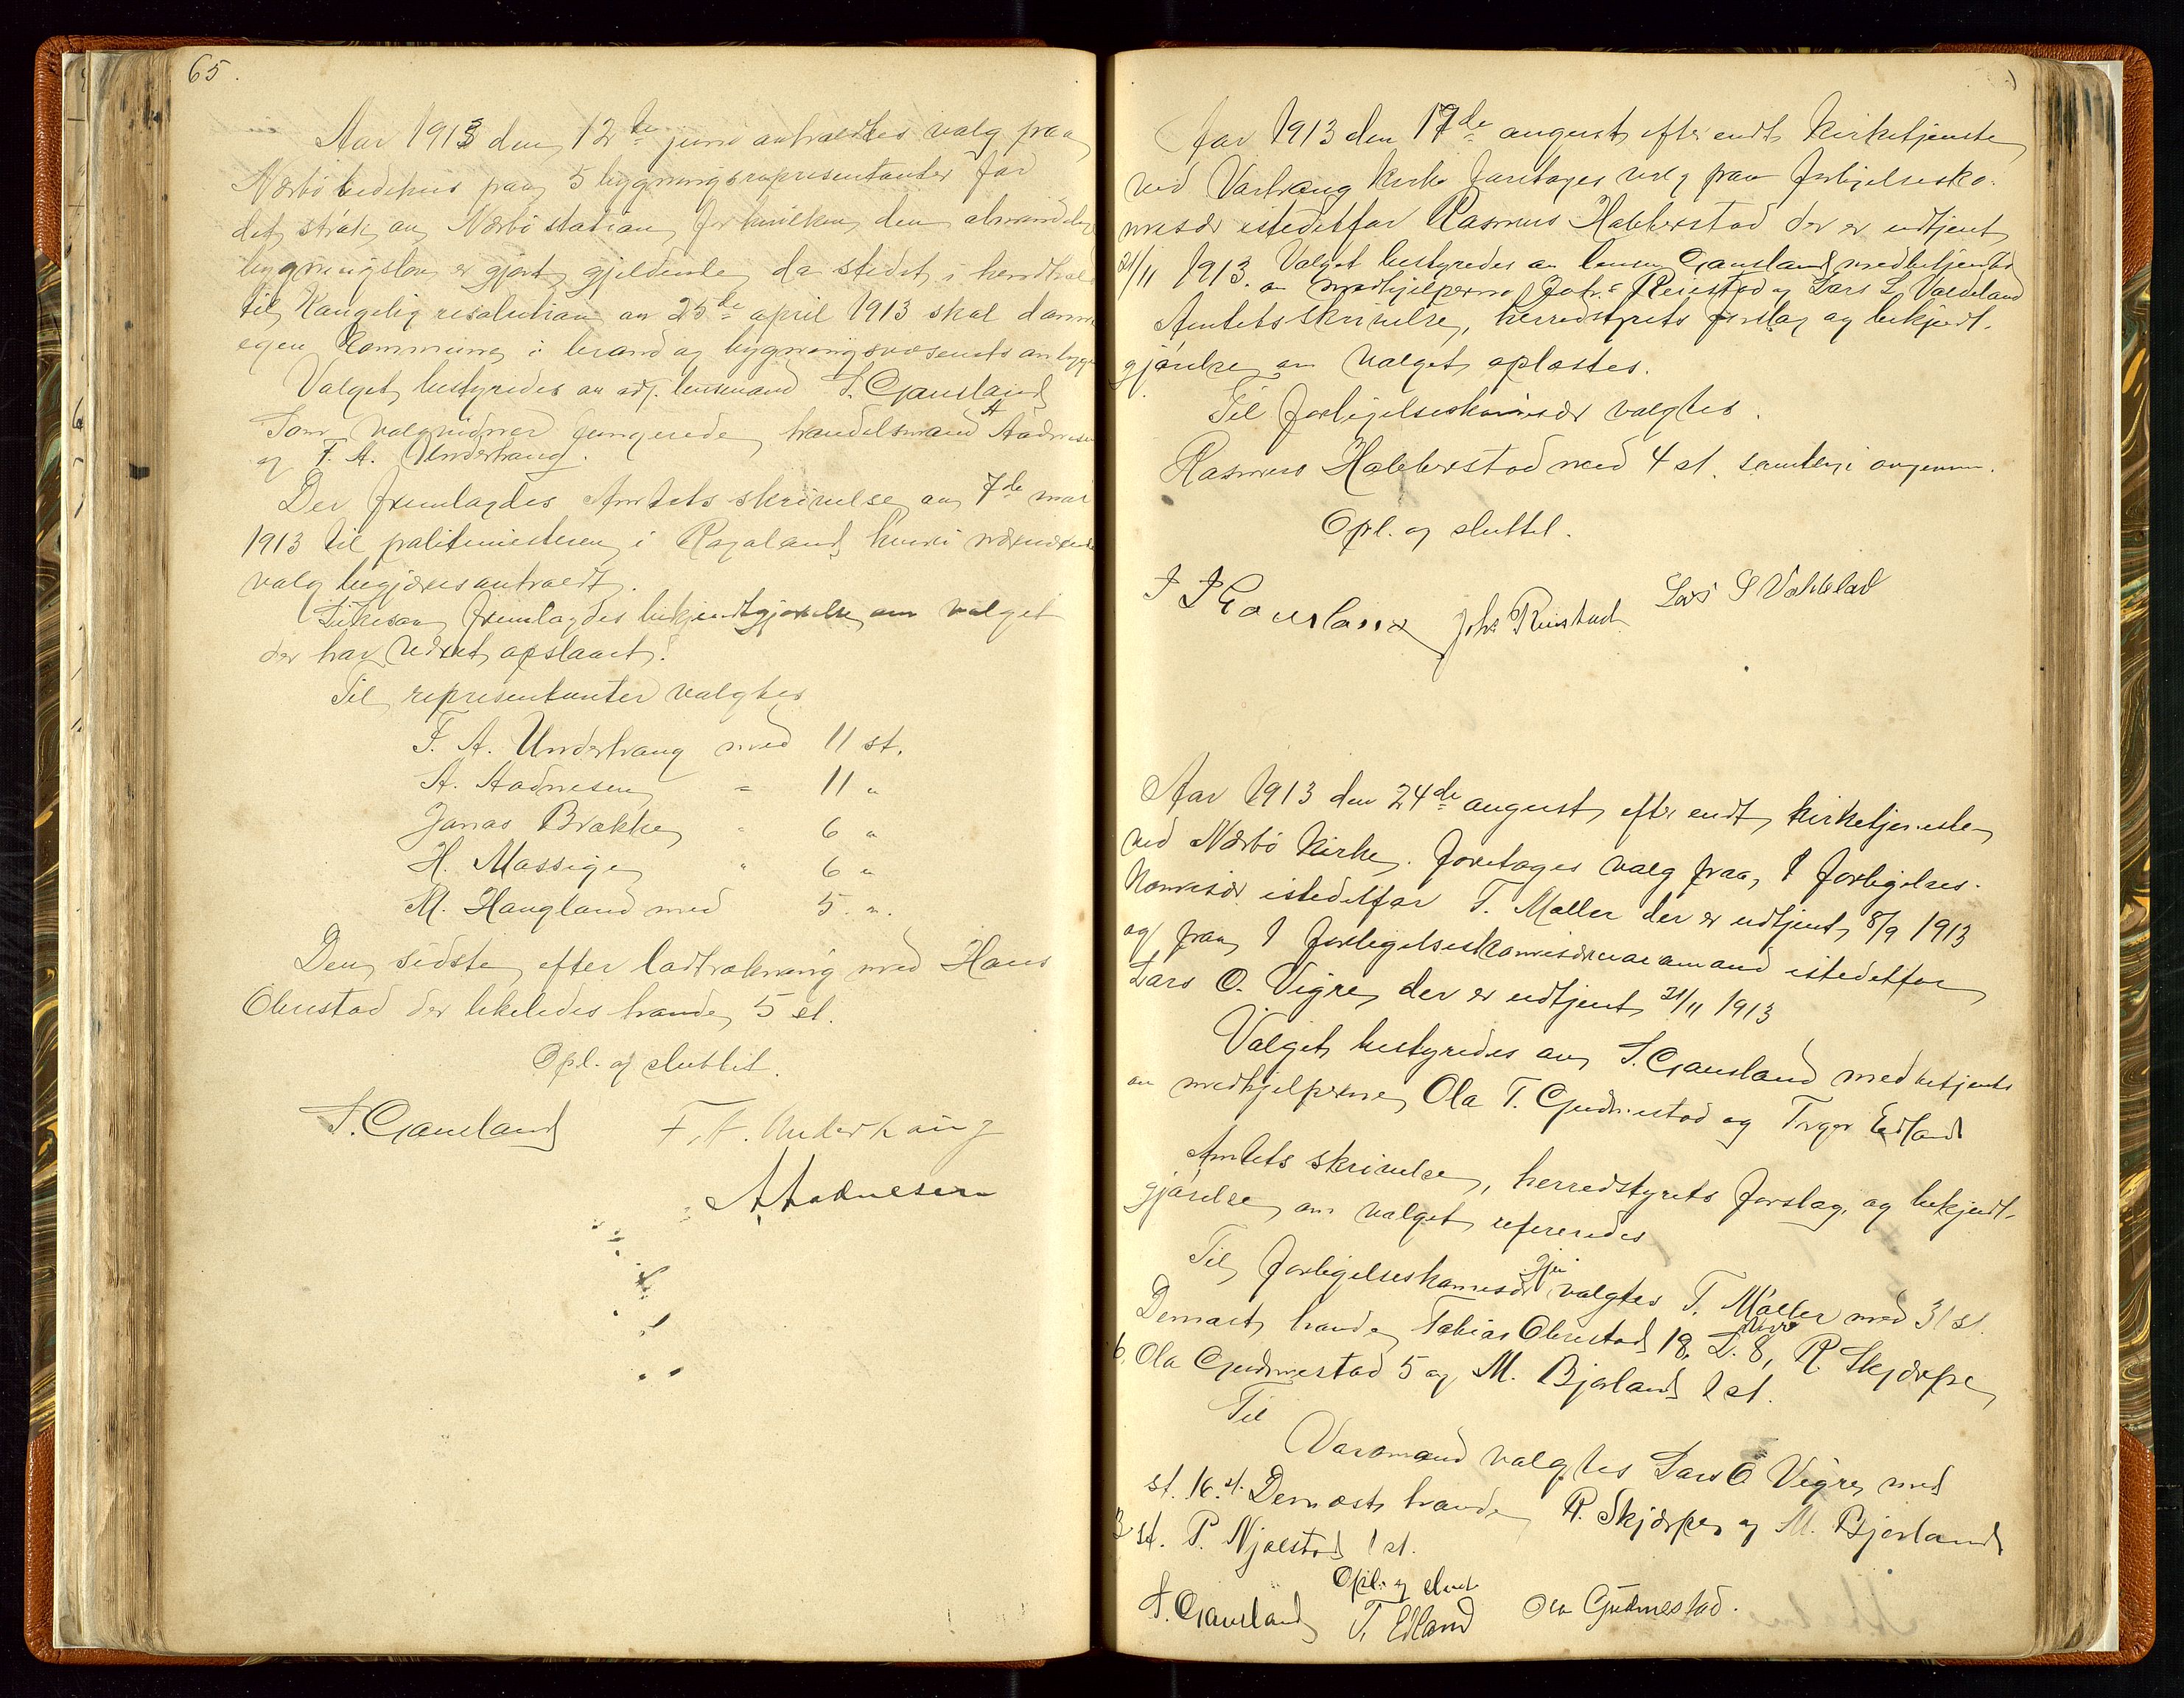 65.
Aar 1913 den 12te juni avholdtes valg paa
Nærbö bedehus paa 5 bygningsrepresentanter for
det strök av Nærbö station for hvilken den almindelige
bygningslov er gjort gjeldende da stedet i henhold
til Kongelig resolution av 25de april 1913 skal danne
egen Kommune i brand og bygningsvæsenets anligg
Valget bestyredes av adj. lensmand S. Gausland
Som valgvidner fungerede handelsmand A Aadnesen
og F. A. Underhaug.
Der fremlagdes Amtets skrivelse av 7de mai
1913 til politimesteren i Rogaland hvori nærværende
valg begjæres avholdt.
Likesaa fremlagdes bekjendtgjørelse om valget
der har været opslaaet.
Til representanter valgtes
F. A. Underhaug med 11 st.
A. Aadnesen " 11 "
Jonas Brække " 6 "
H. Massige " 6 "
M. Haugland med 5 ".
Den sidste efter lodtrækning med Hans
Obrestad der likeledes havde 5 st.
Opl. og sluttet.
S. Gausland F. A. Underhaug
A Aadnesen
Aar 1913 den 17de august efter endt Kirketjeneste
ved Varhaug Kirke foretoges valg paa forligelsesko-
misær istedetfor Rasmus Habberstad der er udtjent
21/11 1913. Valget bestyredes av lensm Gausland med betjent
av medhjelperne Johs Reiestad og Lars S. Valdeland
Amtets skrivelse, herredstyrets forslag og bekjendt-
gjörelse om valget oplæstes.
Til forligelseskomisær valgtes.
Rasmus Habberstad med 4 st. samtlige avgivne.
Opl. og sluttet.
S S Gausland Johs Reiestad Lars S Valdelad
Aar 1913 den 24de august efter endt kirketjeneste
ved Nærbö Kirke. foretoges valg paa 1 forligelses-
komisær istedetfor T. Møller der er udtjent 8/9 1913
og paa 1 forligelseskomisærvaramand istedetfor
Lars O. Vigre der er udtjent 21/11 1913
Valget bestyredes av S. Gausland med betjent
av medhjelperne Ola T. Gudmestad og Torger Edland
Amtets skrivelse, herredstyrets forslag og bekjendt-
gjörelse om valget refereredes
Til forligelseskomisær gjen valgtes T. Møller med 31 st.
Dernæst havde Tobias Obrestad 18. L. 8, R. Skjærpe
6, Ola Gudmestad 5 og M. Bjorland 1 st.
Til
Varamand valgtes Lars O Vigre med
st. 16 st. Dernæst havde R. Skjærpe og M. Bjorland
3 st. P. Njaestad 1 st.
Opl. og slut
S. Gausland T. Edland Ola Gudmestad.